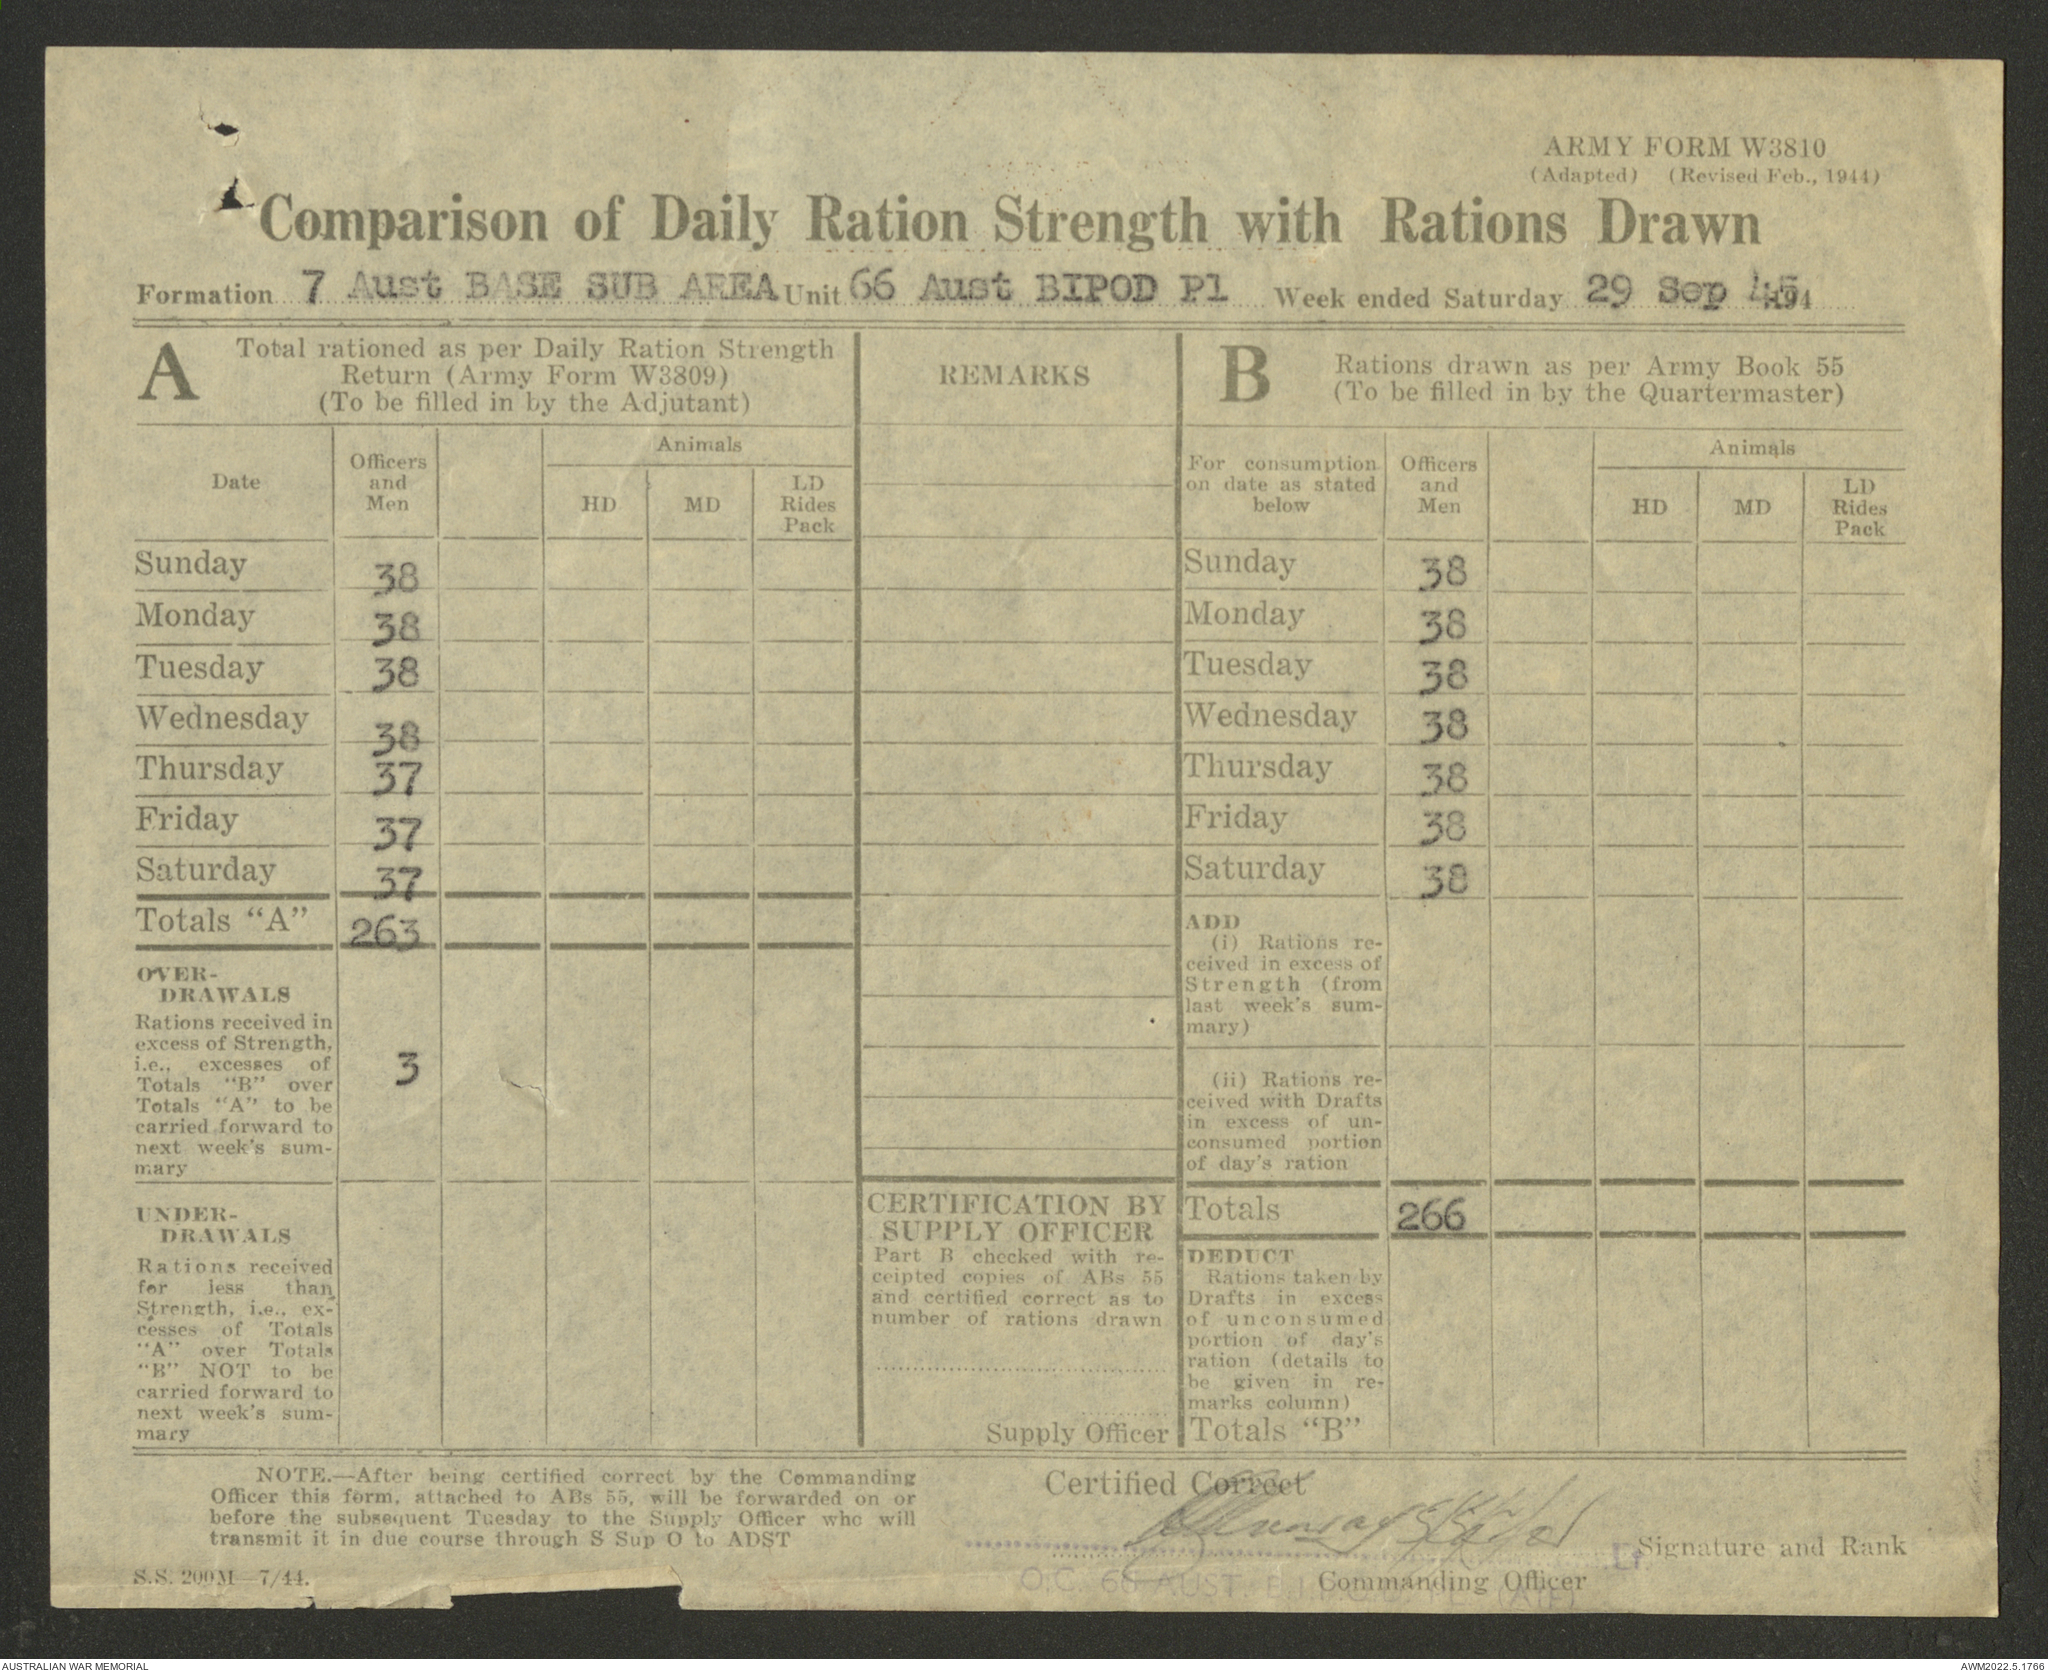 ARMY FORM W3810
(Adapted) (Revised Feb., 1944)
Comparison of Daily Ration Strength with Rations Drawn
Formation 7 Aust BASE SUB AREA Unit 66 Aust BIPOD Pl Week ended Saturday 29 Sep 45 194
A
Total rationed as per Daily Ration Strength
Return (Army Form W3809)
(To be filled in by the Adjutant)
Date
Officers
and
Men
Animals
HD
MD
LD
Rides
Pack
Sunday 38
Monday 38
Tuesday 38
Wednesday 38
Thursday 37
Friday 37
Saturday 37
Totals "A" 263
OVER-
DRAWALS
Rations received in
excess of Strength,
i.e., excesses of
Totals "B" over
Totals "A" to be
carried forward to
next week's sum-
mary
3
UNDER-
DRAWALS
Rations received
for less than
Strength, i.e., ex-
cesses of Totals
"A" over Totals
"B" NOT to be
carried forward to
next week's sum-
mary
REMARKS
CERTIFICATION BY
SUPPLY OFFICER
Part B checked with re-
ceipted copies of ABs 55
and certified correct as to
number of rations drawn
Supply Officer
B
Rations drawn as per Army Book 55
(To be filled in by the Quartermaster)
For consumption
on date as stated
below
Officers
and
Men
Animals
HD
MD
LD
Rides
Pack
Sunday 38
Monday 38
Tuesday 38
Wednesday 38
Thursday 38
Friday 38
Saturday 38
ADD
(i) Rations re-
ceived in excess of
Strength (from
last week's sum-
mary)
(ii) Rations re-
ceived with Drafts
in excess of un-
consumed portion
of day's ration
Totals 266
DEDUCT
Rations taken by
Drafts in excess
of unconsumed
portion of day's
ration (details to
be given in re-
marks column)
Totals "B"
NOTE.—After being certified correct by the Commanding
Officer this form, attached to ABs 55, will be forwarded on or
before the subsequent Tuesday to the Supply Officer who will
transmit it in due course through S Sup O to ADST
S.S. 200M—7/44.
Certified Correct
Lt Signature and Rank
Commanding Officer
O.C. 66 AUST. BIPOD PL (AIF)
AUSTRALIAN WAR MEMORIAL
AWM2022.5.1766